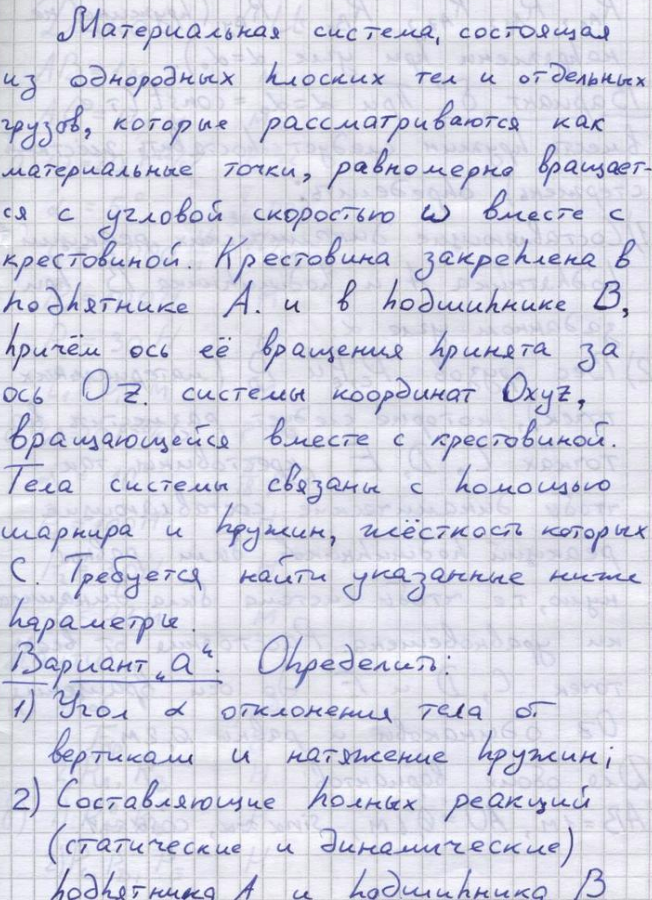 Материальная система, состоящая
из однородных плоских тел и отдельных
грузов, которые рассматриваются как
материальные точки, равномерно вращает-
ся с угловой скоростью ω вместе с
крестовиной. Крестовина закреплена в
подпятнике A. и в подшипнике B,
причём ось её вращения принята за
ось Oz. системы координат Oxyz,
вращающейся вместе с крестовиной.
Тела системы связаны с помощью
шарнира и пружин, жёсткость которых
C. Требуется найти указанные ниже
параметры.
Вариант „а“. Определить:
1) Угол α отклонения тела от
вертикали и натяжение пружин;
2) Составляющие полных реакций
(статические и динамические)
подпятника A и подшипника B